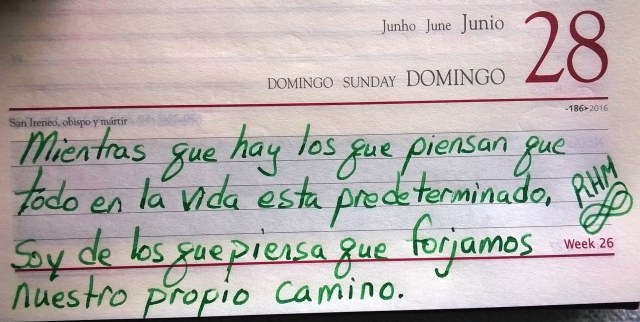 Junho June Junio
28
DOMINGO SUNDAY DOMINGO
-186>2016
San Ireneo, obispo y mártir
Mientras que hay los que piensan que
todo en la vida esta predeterminado,
RHM
Soy de los que piensa que forjamos
Week 26
nuestro propio camino.